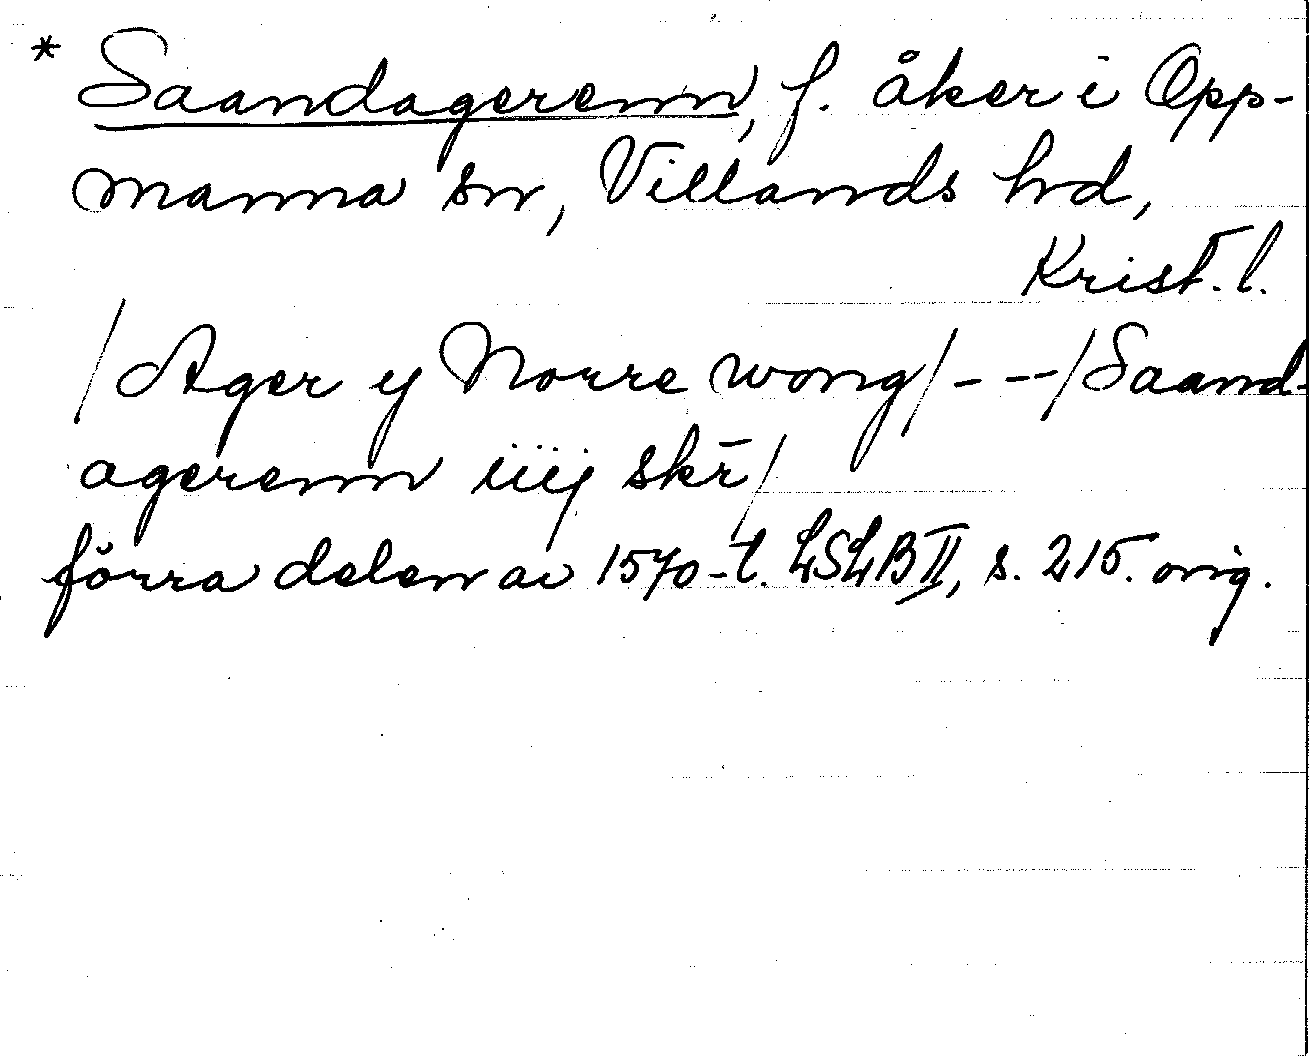 * Saandagerenn, f. åker i Opp-
manna sn, Villands hd,
Krist. l.
/Ager y Norre wong/---/Saand-
agerenn iiij skr̄/
förra delen av 1570-t. LSLB II, s. 215. orig.